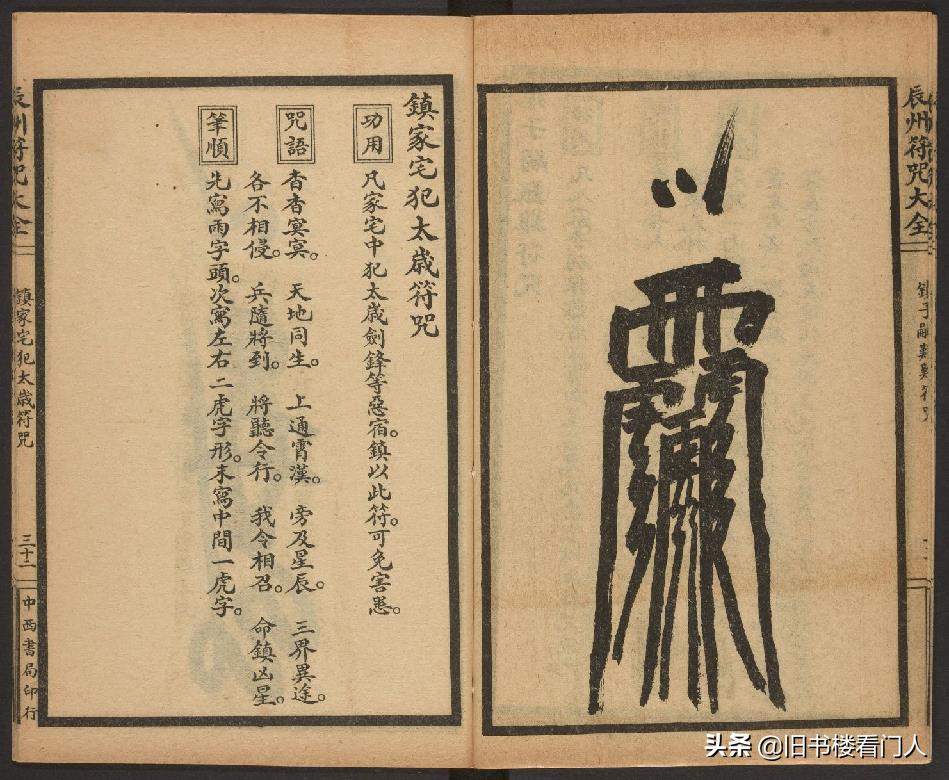 辰州符咒大全
鎮家宅犯太歲符咒
功用
凡家宅中犯太歲劍鋒等惡宿。鎮以此符。可免害患。
咒語
杳杳冥冥。天地同生。上通霄漢。旁及星辰。三界異途。
各不相侵。兵隨將到。將聽令行。我令相召。命鎮凶星。
筆順
先寫雨字頭。次寫左右二虎字形。末寫中間一虎字。
辰州符咒大全
鎮家宅犯太歲符咒
三十二
中西書局印行
头条 @旧书楼看门人